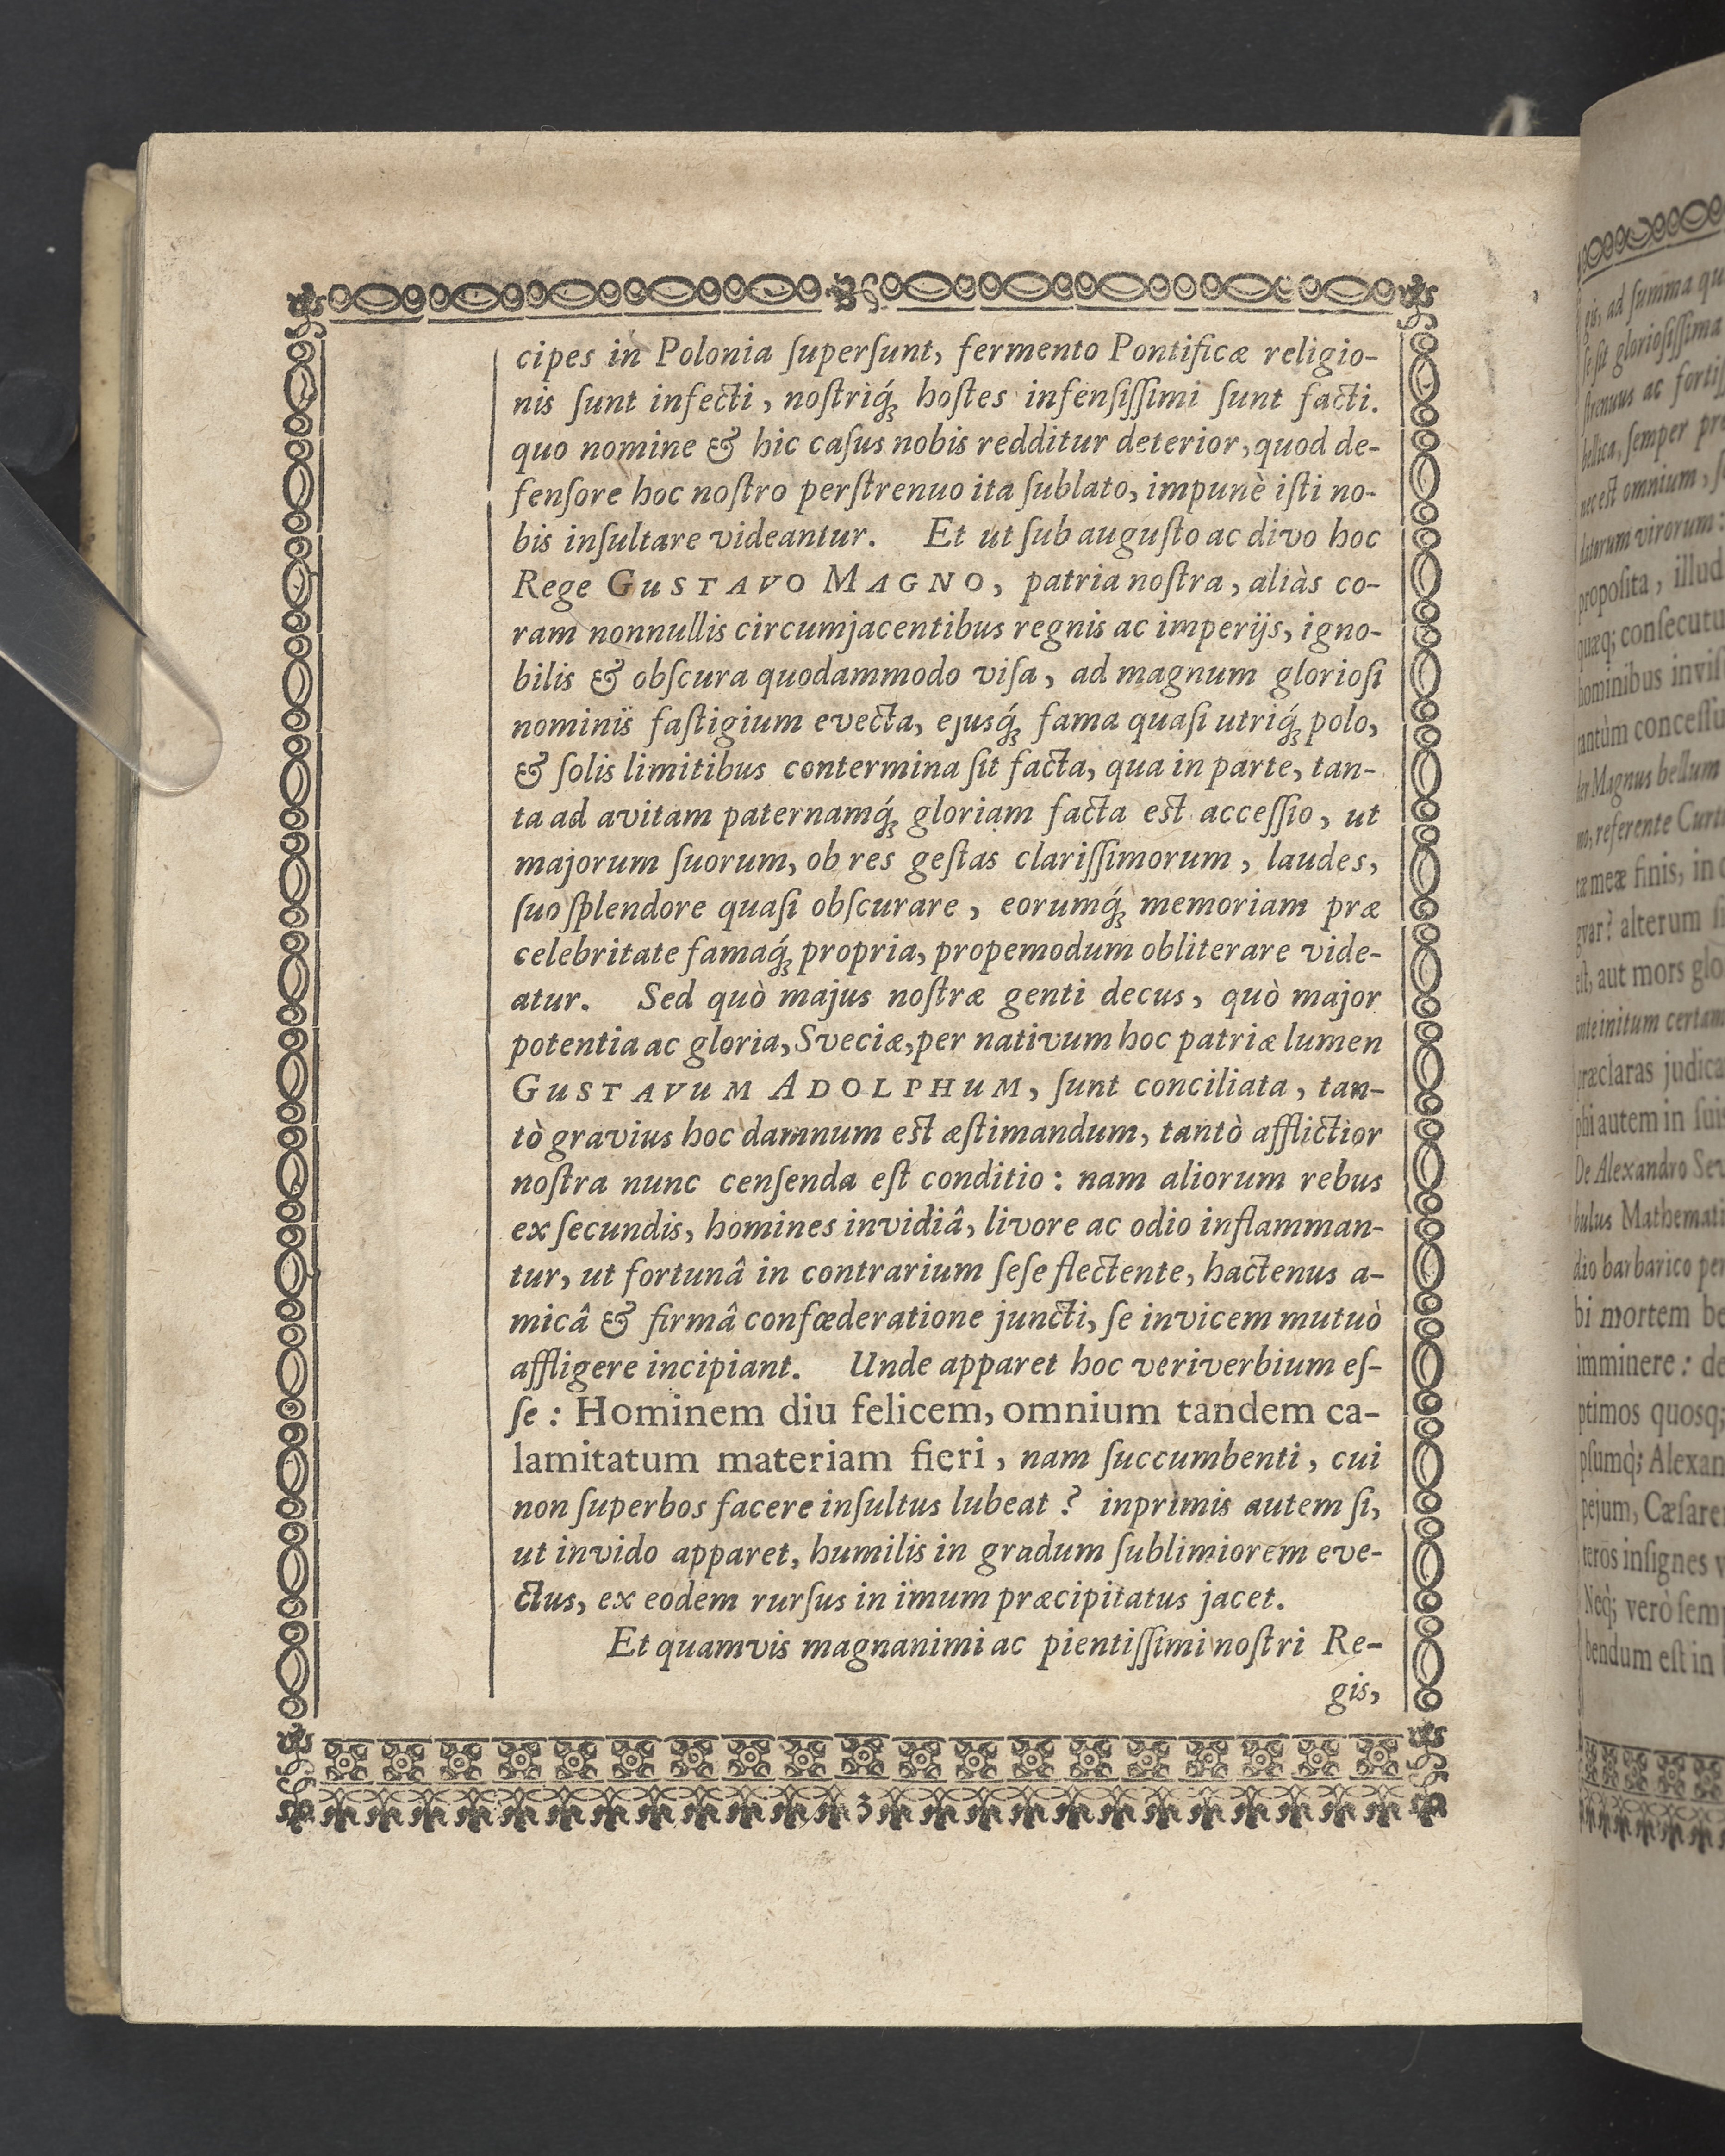 cipes in Polonia ſuperſunt, fermento Pontificæ religio-
nis ſunt infecti, noſtriq́ꝫ hoſtes infenſiſſimi ſunt facti.
quo nomine & hic caſus nobis redditur deterior, quod de-
fenſore hoc noſtro perſtrenuo ita ſublato, impunè iſti no-
bis inſultare videantur. Et ut ſub auguſto ac divo hoc
Rege GUSTAVO MAGNO, patria noſtra, aliàs co-
ram nonnullis circumjacentibus regnis ac imperijs, igno-
bilis & obſcura quodammodo viſa, ad magnum glorioſi
nominis faſtigium evecta, ejusq́ꝫ fama quaſi utriq́ꝫ polo,
& ſolis limitibus contermina ſit facta, qua in parte, tan-
ta ad avitam paternamq́ꝫ gloriam facta est acceſſio, ut
majorum ſuorum, ob res geſtas clariſſimorum, laudes,
ſuo ſplendore quaſi obſcurare, eorumq́ꝫ memoriam præ
celebritate famaq́ꝫ propria, propemodum obliterare vide-
atur. Sed quò majus noſtræ genti decus, quò major
potentia ac gloria, Sveciæ, per nativum hoc patriæ lumen
GUSTAVUM ADOLPHUM, ſunt conciliata, tan-
tò gravius hoc damnum est æſtimandum, tantò afflictior
noſtra nunc cenſenda eſt conditio: nam aliorum rebus
ex ſecundis, homines invidiâ, livore ac odio inflamman-
tur, ut fortunâ in contrarium ſeſe flectente, hactenus a-
micâ & firmâ confœderatione juncti, ſe invicem mutuò
affligere incipiant. Unde apparet hoc veriverbium eſ-
ſe: Hominem diu felicem, omnium tandem ca-
lamitatum materiam fieri, nam ſuccumbenti, cui
non ſuperbos facere inſultus lubeat? inprimis autem ſi,
ut invido apparet, humilis in gradum ſublimiorem eve-
ctus, ex eodem rurſus in imum præcipitatus jacet.
Et quamvis magnanimi ac pientiſſimi noſtri Re-
gis,
gis, ad ſumma
ſe ſit glorioſiſſima
ſtrenuus ac
bellica, ſemper
nec eſt omnium,
virorum:
propoſita, illud
quæq;
hominibus
tantùm
Magnus bellum
referente
meæ finis, in
alterum
eſt, aut mors
initum
præclaras
autem in
De Alexandro
Mathemati
dio barbarico
bi mortem
imminere:
ptimos quosq;
pſumq́; Alexan
pejum,
inſignes
Neq́; verò
bendum eſt in